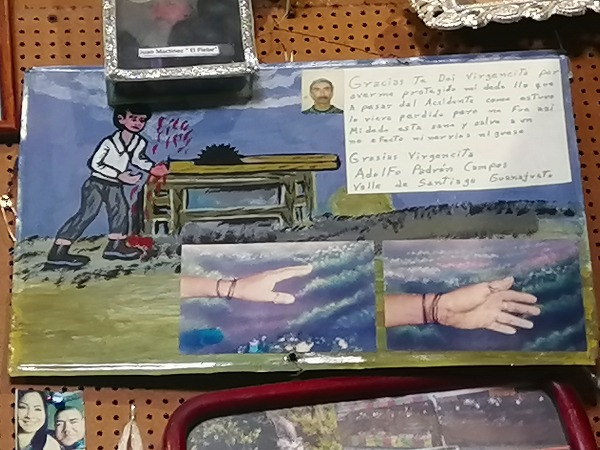 Juan Martinez "El Pieter"
Gracias Te Doi Virgencita por
averme protegido mi dedo llo que
A pesar del Accidente como estuvo
lo viera perdido pero no Fue asi
Mi dedo esta sano y salvo a un
no efecto ni nervios ni gueso
Grasias Virgencita
Adolfo Padrón Campos
Valle de Santiago Guanajuato